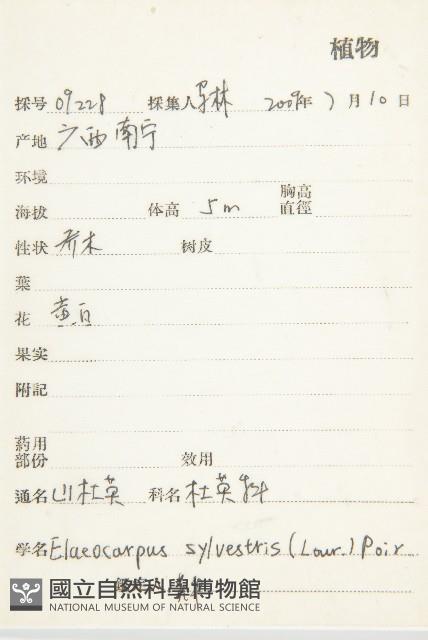 植物
採号 09228 採集人 林 2009年 7月10日
产地 广西南宁
环境
海拔 体高 5m 胸高直徑
性状 乔木 树皮
葉
花 黄白
果实
附記
葯用部份 效用
通名 山杜英 科名 杜英科
学名 Elaeocarpus sylvestris (Lour.) Poir
國立自然科學博物館
NATIONAL MUSEUM OF NATURAL SCIENCE